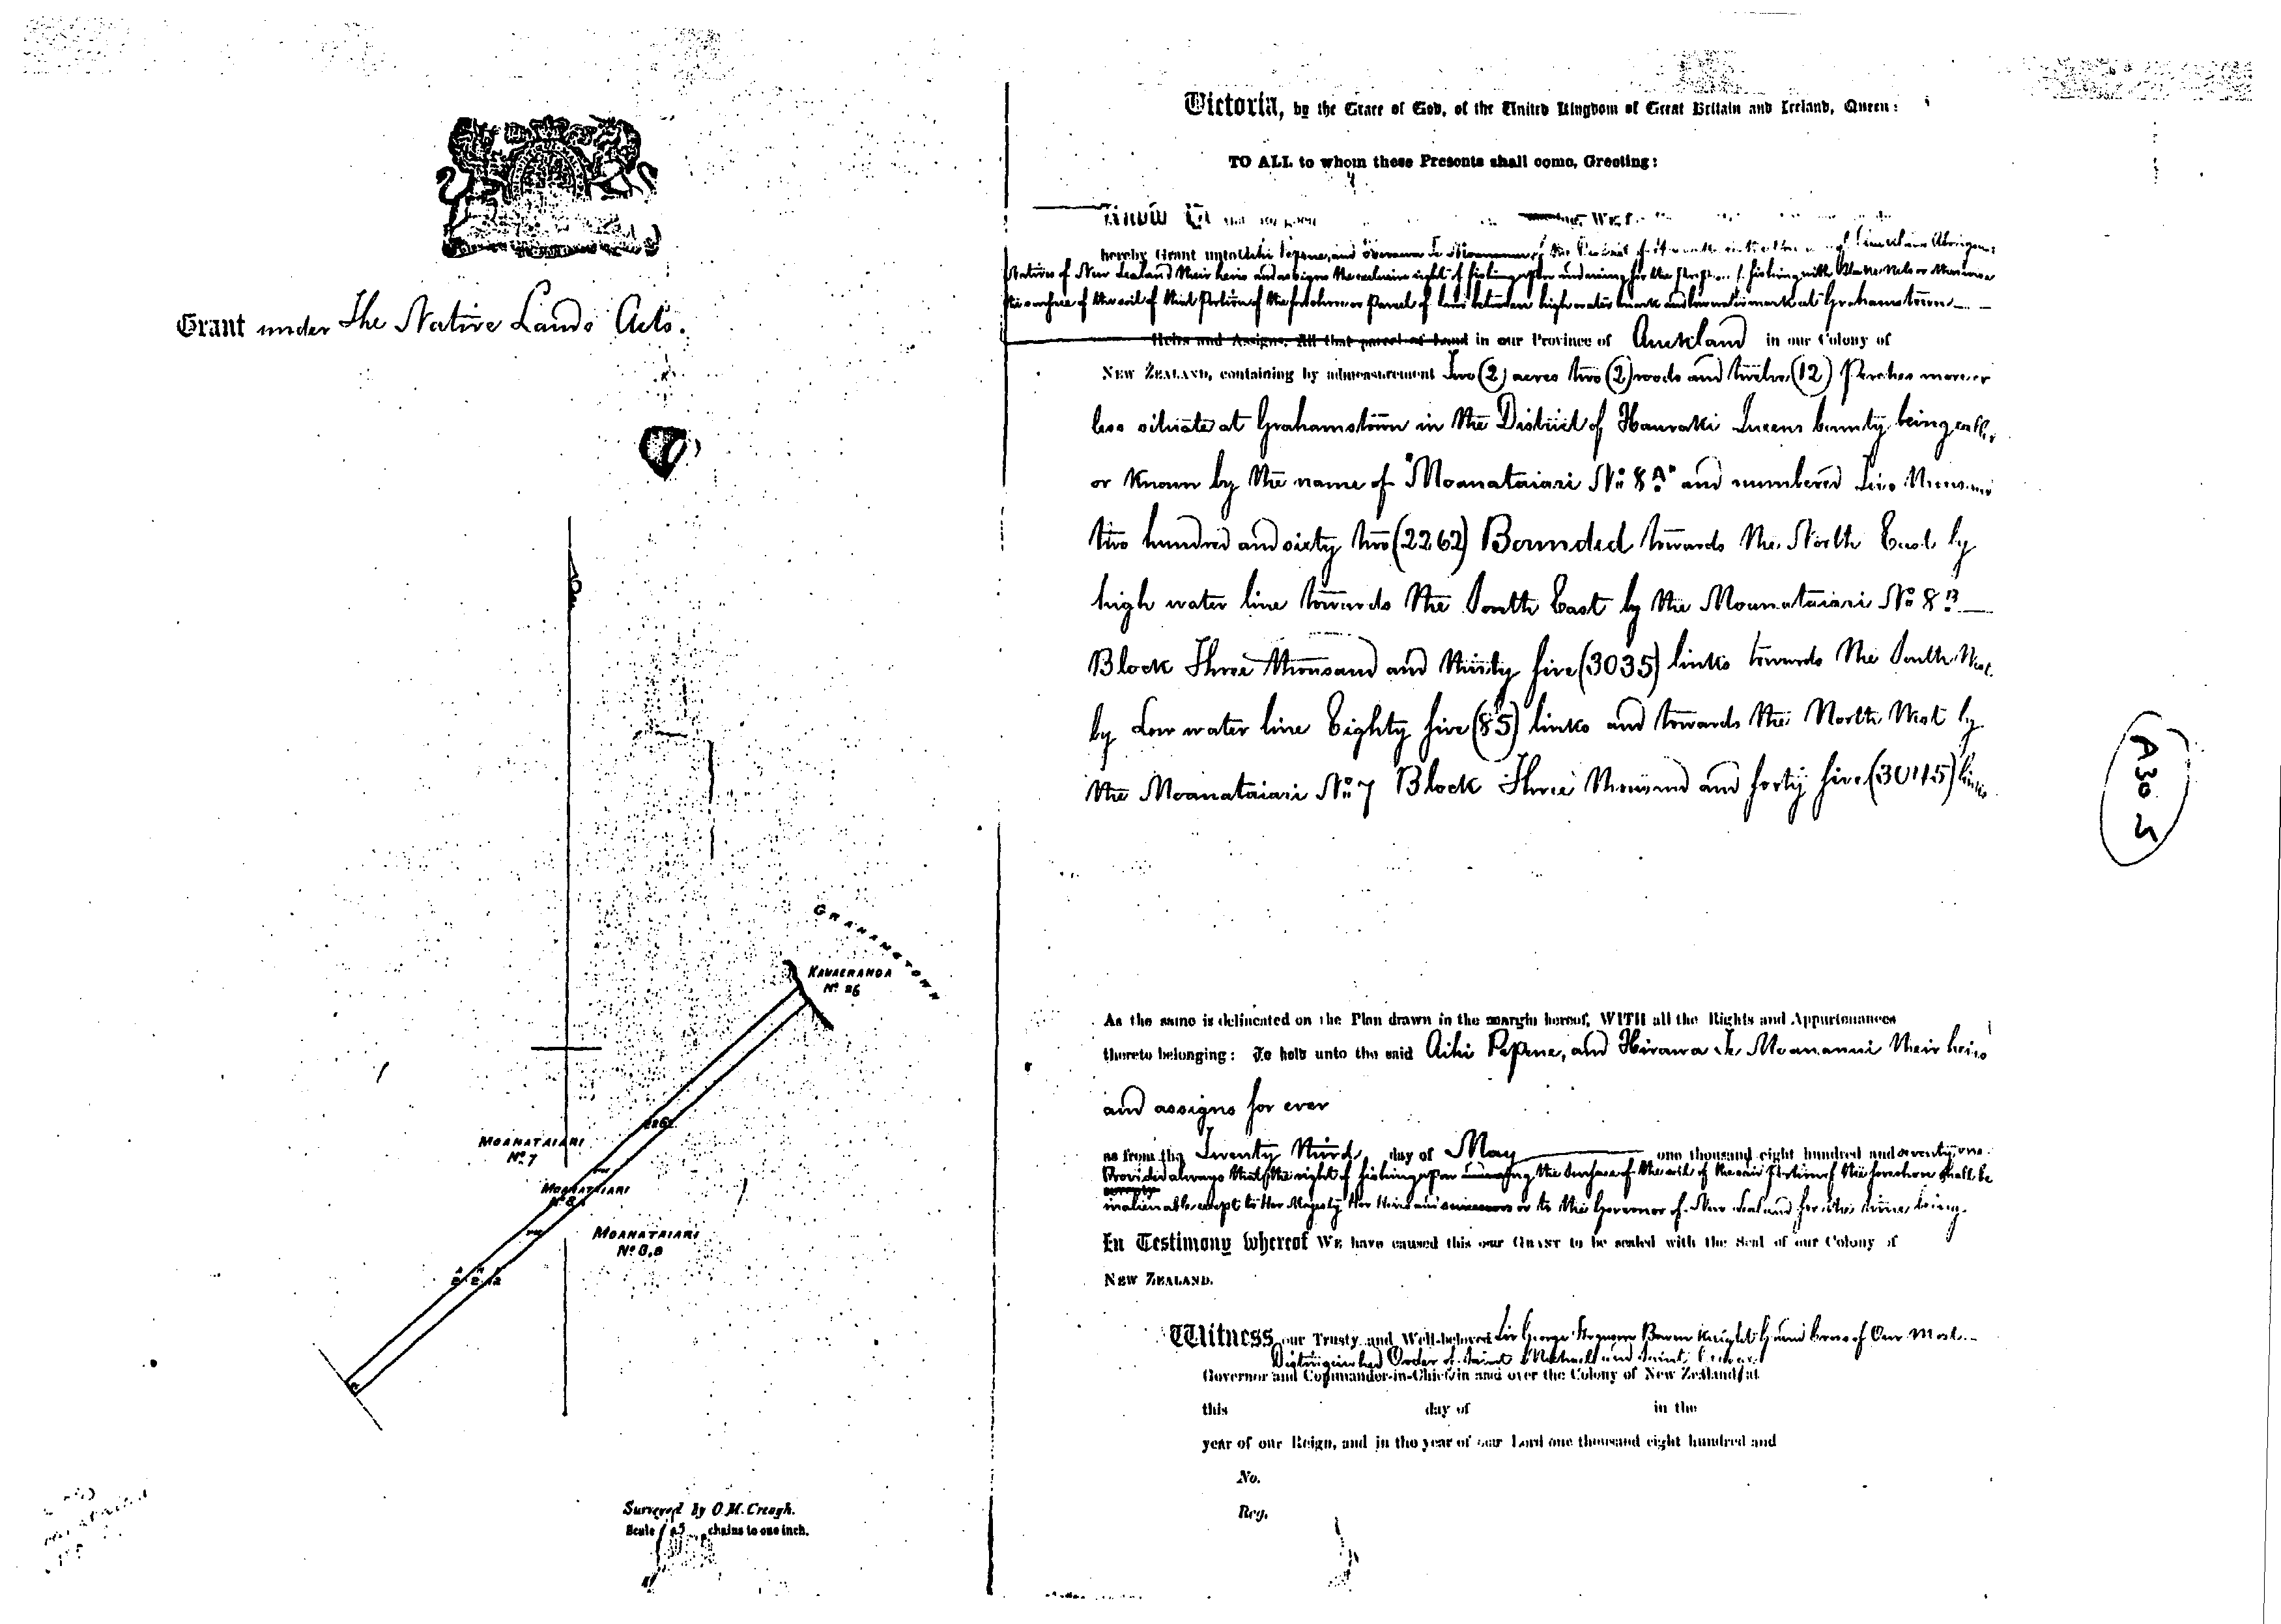 Grant under The Native Lands Acts.
GRAHAMSTOWN
KAUAERANGA
No. 26
2262
MOANATAIARI
No. 7
MOANATAIARI
No. 8A
MOANATAIARI
No. 8,B
A R P
2 2 12
Surveyed by O.M. Creagh.
Scale 5 chains to one inch.
Victoria, by the Grace of God, of the United Kingdom of Great Britain and Ireland, Queen:
TO ALL to whom these Presents shall come, Greeting:
Know Ye
hereby Grant unto Aihi Pepene, and Hirawa Te Moananui
Natives of New Zealand their heirs and assigns the exclusive right of fishing upon and using for the purpose of fishing with Stake Nets or otherwise
the surface of the soil of that Portion of the foreshore or Parcel of land between high water mark and low water mark at Grahamstown
Heirs and Assigns, All that parcel of Land in our Province of Auckland in our Colony of
NEW ZEALAND, containing by admeasurement Two (2) acres two (2) roods and twelve (12) Perches more or
less situate at Grahamstown in the District of Hauraki Queens County being called
or known by the name of "Moanataiari No. 8A" and numbered Two Thousand
two hundred and sixty two (2262) Bounded towards the North East by
high water line towards the South East by the Moanataiari No. 8B
Block Three thousand and thirty five (3035) links towards the South West
by Low water line Eighty five (85) links and towards the North West by
the Moanataiari No. 7 Block Three Thousand and forty five (3045) links
As the same is delineated on the Plan drawn in the margin hereof, WITH all the Rights and Appurtenances
thereto belonging: To hold unto the said Aihi Pepene, and Hirawa Te Moananui their heirs
and assigns for ever
as from the Twenty third day of May one thousand eight hundred and seventy one
Provided always that the right of fishing upon and using the surface of the soil of the said Portion of the foreshore shall be
inalienable except to Her Majesty Her Heirs and successors or to the Governor of New Zealand for the time being.
In Testimony whereof WE have caused this our GRANT to be sealed with the Seal of our Colony of
NEW ZEALAND.
Witness our Trusty and Well-beloved Sir George Ferguson Bowen Knight Grand Cross of Our Most
Distinguished Order of Saint Michael and Saint George
Governor and Commander-in-Chief in and over the Colony of New Zealand, at
this day of in the
year of our Reign, and in the year of our Lord one thousand eight hundred and
No.
Reg.
A30